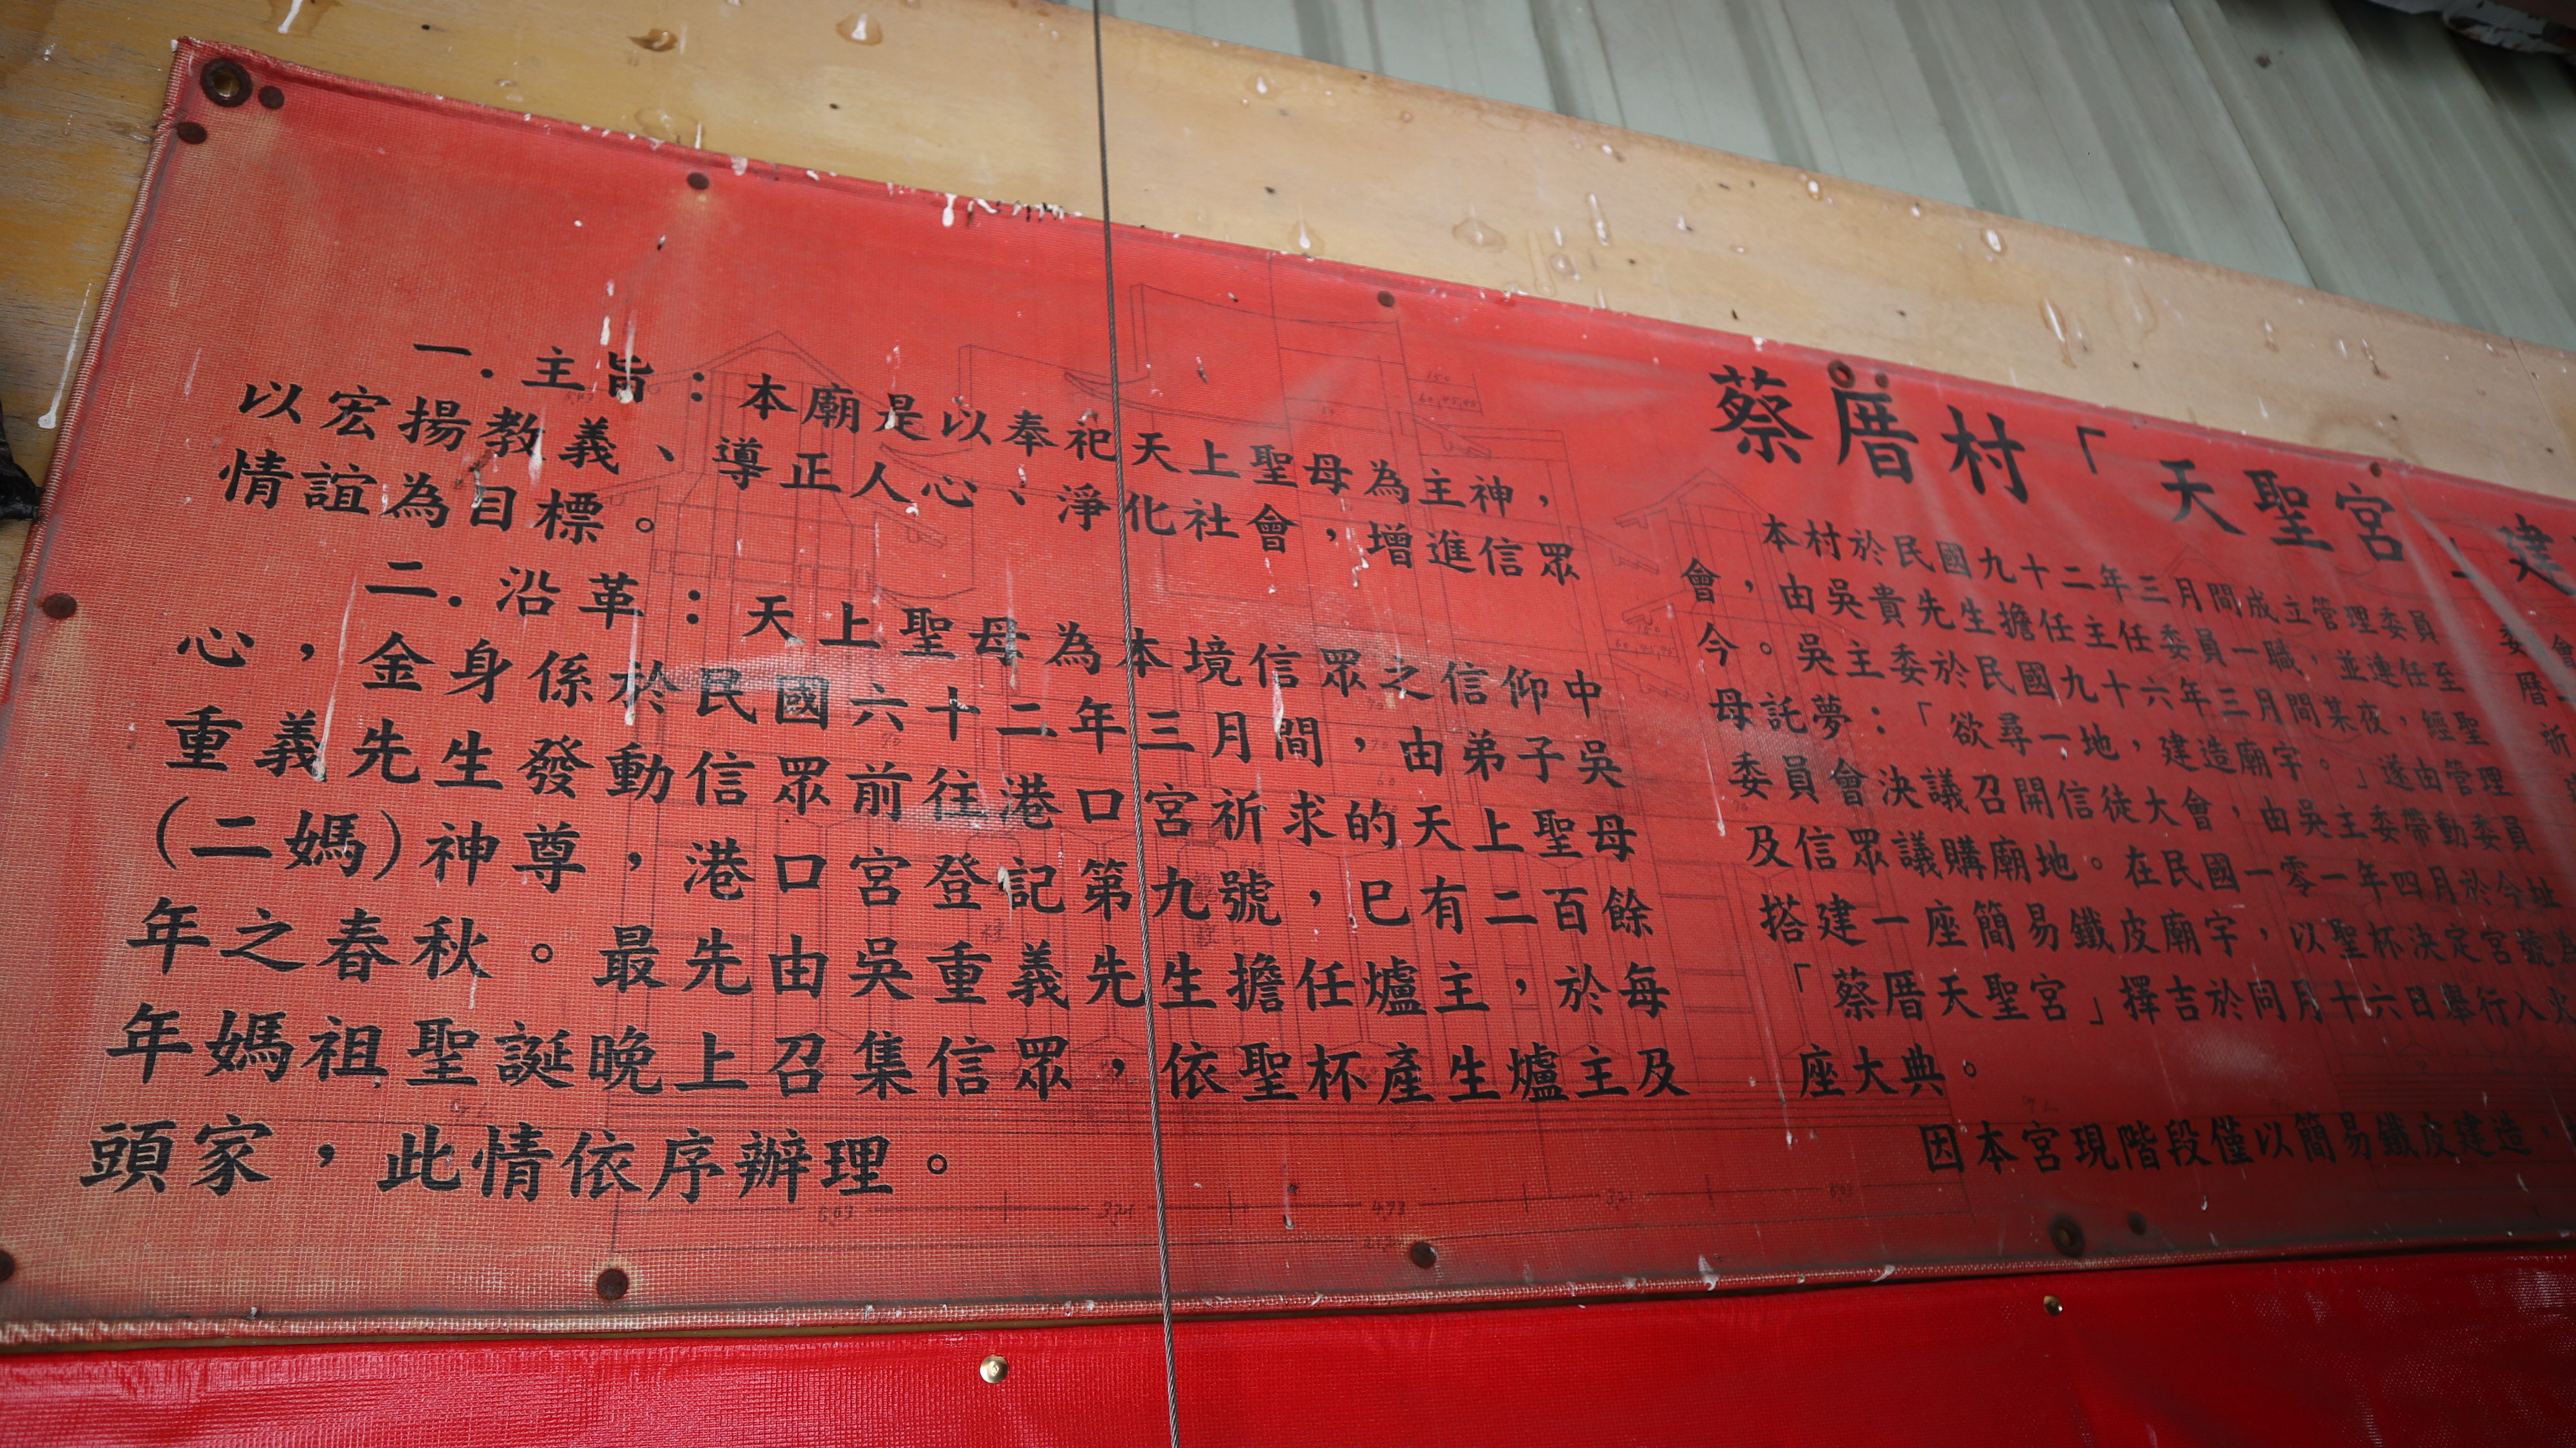 一.主旨：本廟是以奉祀天上聖母為主神，
以宏揚教義、導正人心、淨化社會，增進信眾
情誼為目標。
二.沿革：天上聖母為本境信眾之信仰中
心，金身係於民國六十二年三月間，由弟子吳
重義先生發動信眾前往港口宮祈求的天上聖母
(二媽)神尊，港口宮登記第九號，已有二百餘
年之春秋。最先由吳重義先生擔任爐主，於每
年媽祖聖誕晚上召集信眾，依聖杯產生爐主及
頭家，此情依序辦理。
蔡厝村「天聖宮」建
本村於民國九十二年三月間成立管理委員
會，由吳貴先生擔任主任委員一職，並連任至
今。吳主委於民國九十六年三月間某夜，經聖
母託夢：「欲尋一地，建造廟宇。」遂由管理
委員會決議召開信徒大會，由吳主委帶動委員
及信眾議購廟地。在民國一零一年四月於今址
搭建一座簡易鐵皮廟宇，以聖杯決定宮號為
「蔡厝天聖宮」擇吉於同月十六日舉行入火
座大典。
因本宮現階段僅以簡易鐵皮建造，